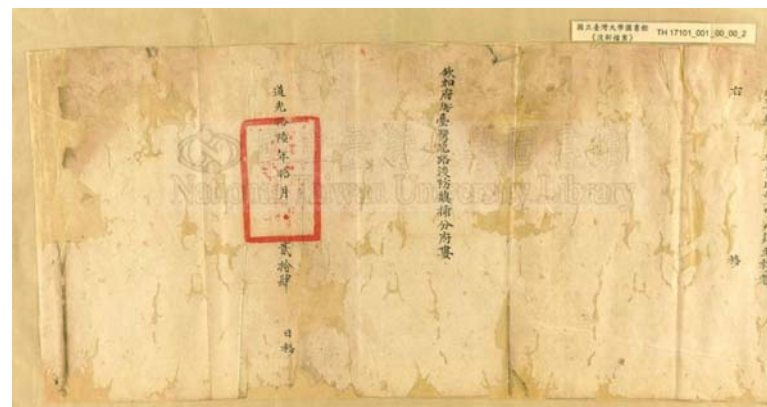 國立臺灣大學圖書館
《淡新檔案》
TH 17101_001_00_00_2
右
移
欽加府銜臺灣北路淡防總捕分府婁
道光拾陸年拾月
貳拾肆
日移
National Taiwan University Library